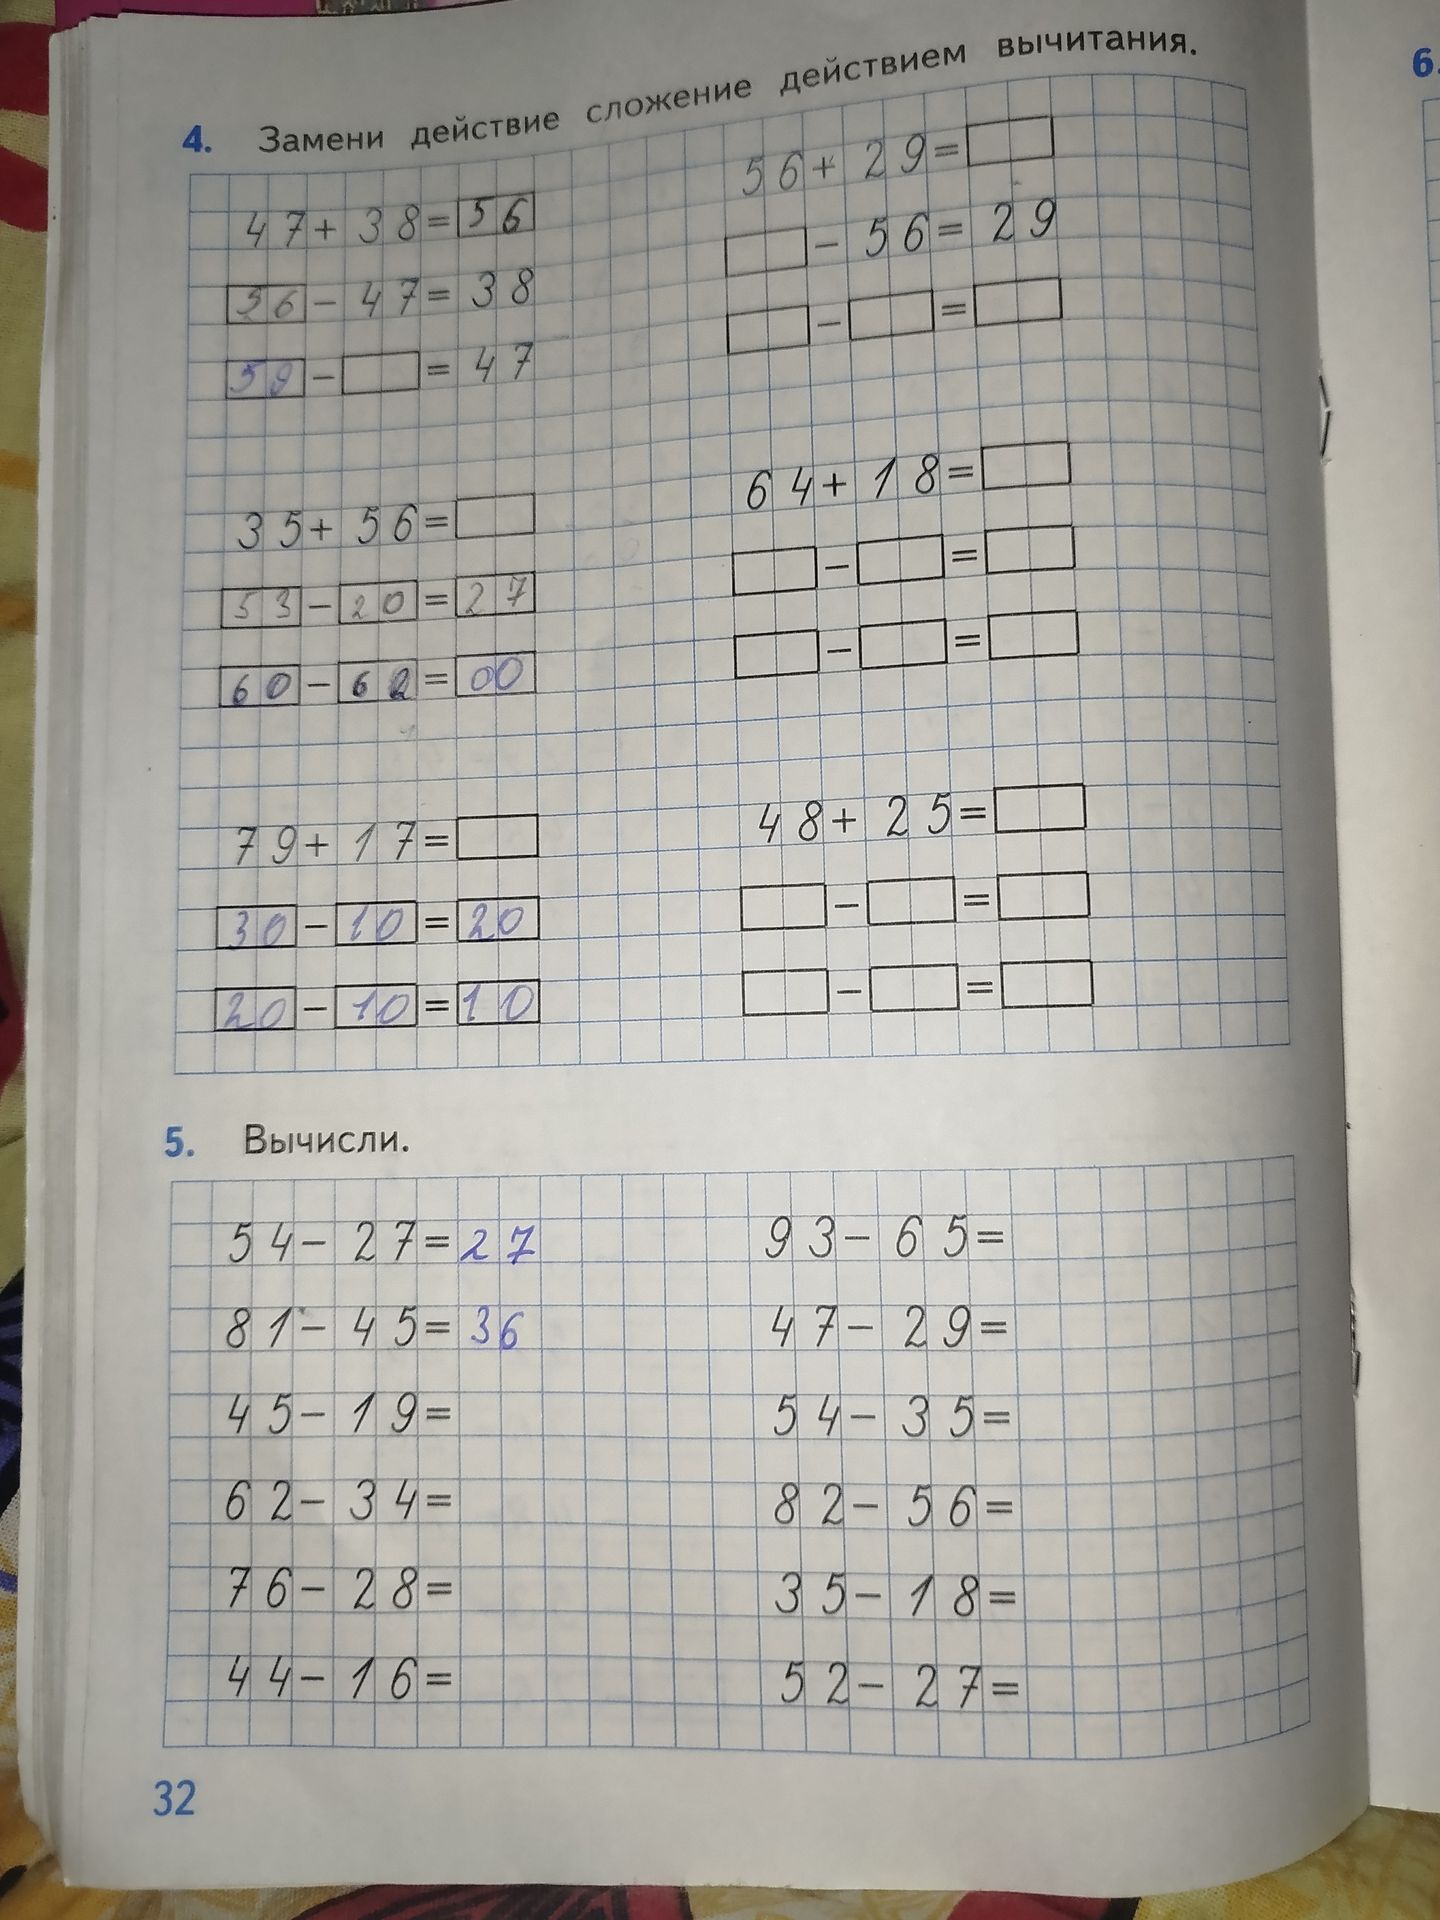 4. Замени действие сложение действием вычитания.
47+38=56
56-47=38
59-=47
35+56=
53-20=27
60-62=00
79+17=
30-10=20
20-10=10
56+29=
-56=29
-=
64+18=
-=
-=
48+25=
-=
-=
5. Вычисли.
54-27=27
81-45=36
45-19=
62-34=
76-28=
44-16=
93-65=
47-29=
54-35=
82-56=
35-18=
52-27=
32
6.